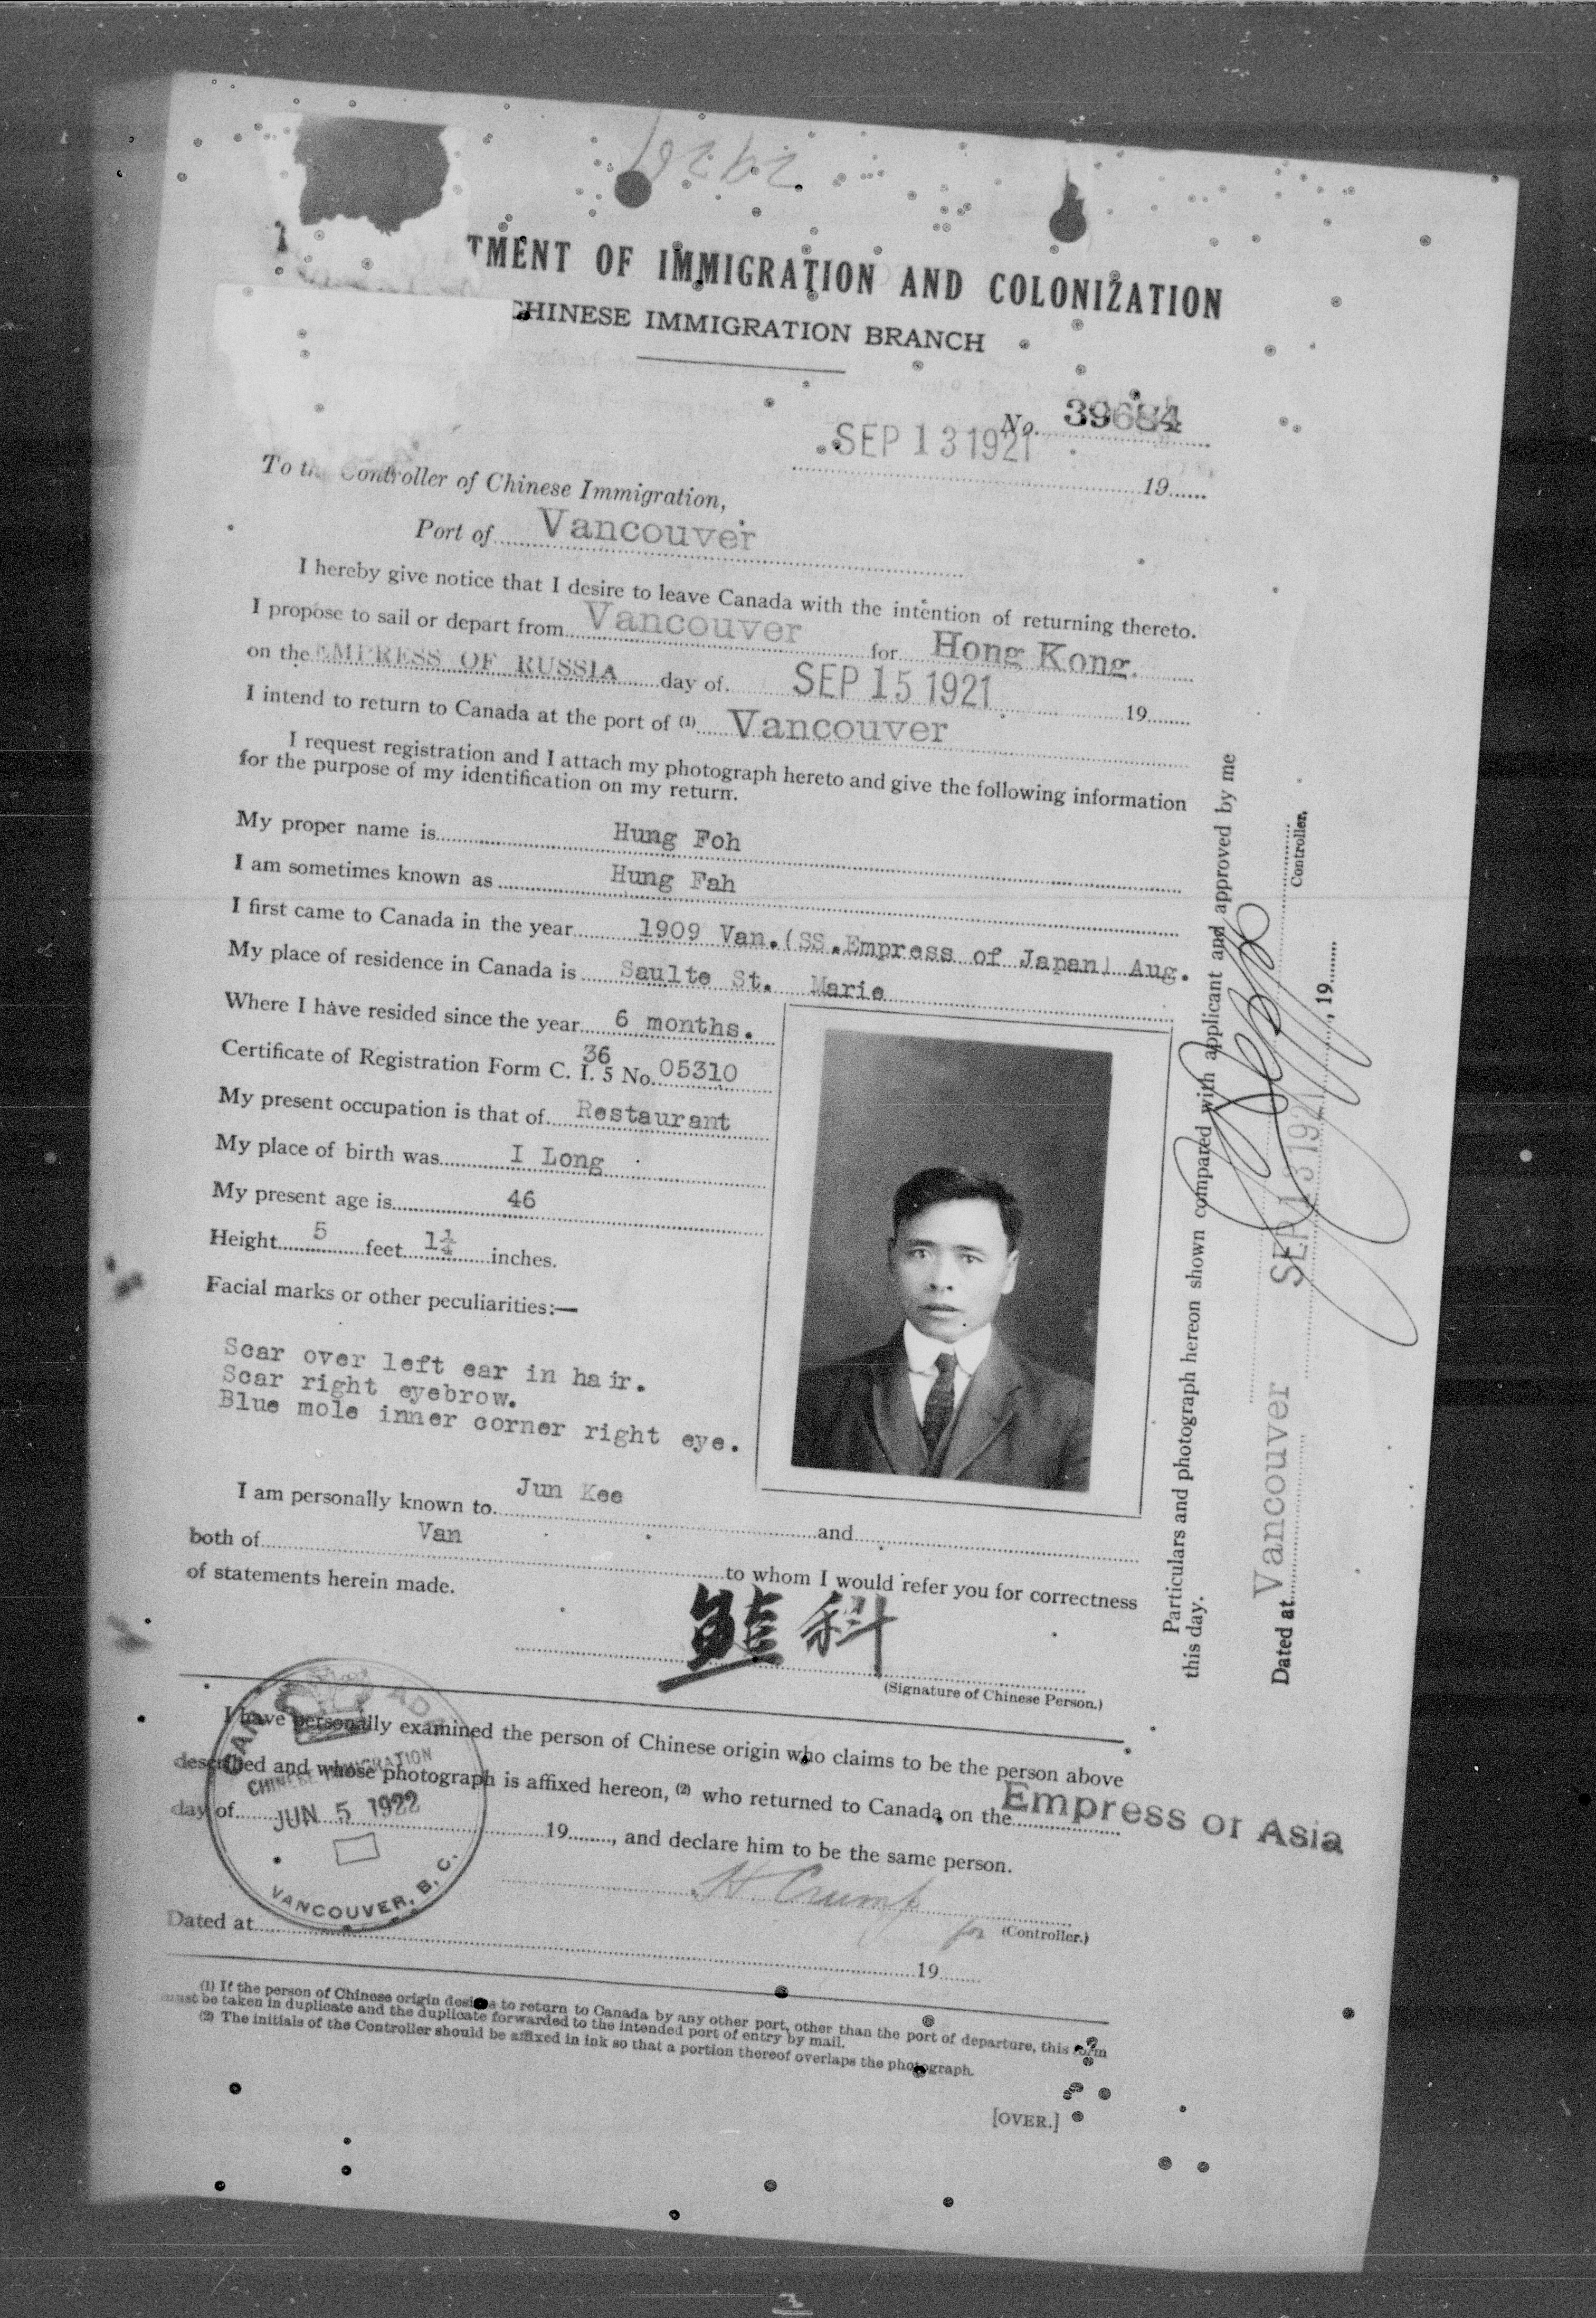 TMENT OF IMMIGRATION AND COLONIZATION
CHINESE IMMIGRATION BRANCH
No. 39684
SEP 13 1921 19......
To the Controller of Chinese Immigration,
Port of Vancouver
I hereby give notice that I desire to leave Canada with the intention of returning thereto.
I propose to sail or depart from Vancouver for Hong Kong.
on the EMPRESS OF RUSSIA day of SEP 15 1921 19......
I intend to return to Canada at the port of (1) Vancouver
I request registration and I attach my photograph hereto and give the following information
for the purpose of my identification on my return.
My proper name is Hung Foh
I am sometimes known as Hung Fah
I first came to Canada in the year 1909 Van.(SS.Empress of Japan) Aug.
My place of residence in Canada is Saulte St. Marie
Where I have resided since the year 6 months.
36
Certificate of Registration Form C. I. 5 No. 05310
My present occupation is that of Restaurant
My place of birth was I Long
My present age is 46
Height 5 feet 1¼ inches.
Facial marks or other peculiarities:—
Scar over left ear in hair.
Scar right eyebrow.
Blue mole inner corner right eye.
I am personally known to Jun Kee and
both of Van to whom I would refer you for correctness
of statements herein made.
科
(Signature of Chinese Person.)
I have personally examined the person of Chinese origin who claims to be the person above
described and whose photograph is affixed hereon, (2) who returned to Canada on the Empress of Asia
day of 19......, and declare him to be the same person.
CANADA
CHINESE IMMIGRATION
JUN 5 1922
VANCOUVER, B. C.
H. Crump
for (Controller.)
Dated at 19......
(1) If the person of Chinese origin desires to return to Canada by any other port, other than the port of departure, this form
must be taken in duplicate and the duplicate forwarded to the intended port of entry by mail.
(2) The initials of the Controller should be affixed in ink so that a portion thereof overlaps the photograph.
[OVER.]
Particulars and photograph hereon shown compared with applicant and approved by me
this day.
Controller.
Dated at Vancouver SEP 13 1921, 19......